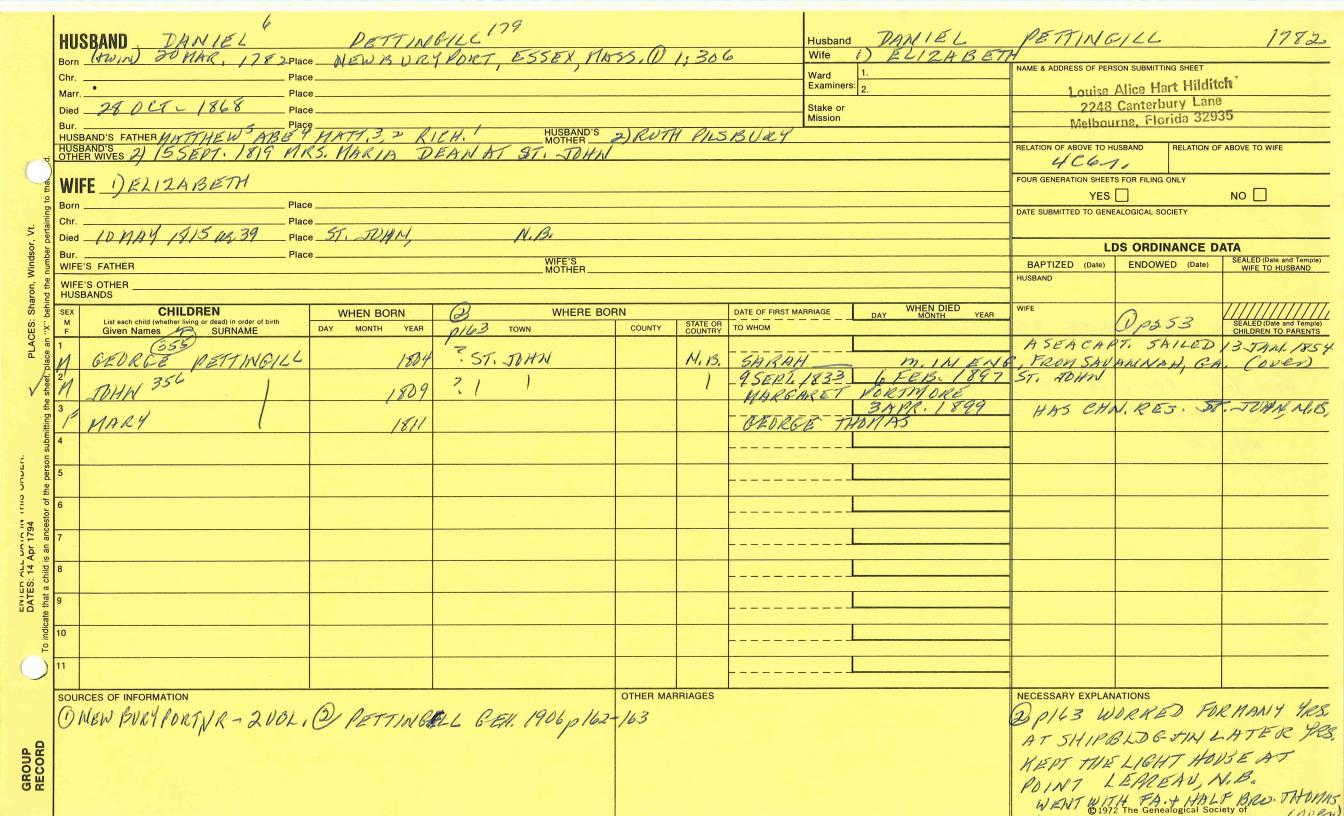 HUSBAND DANIEL 6 PETTINGILL 179
Born (TWIN) 20 MAR. 1782 Place NEWBURYPORT, ESSEX, MASS. ① 1:306
Chr. Place
Marr. Place
Died 28 OCT - 1868 Place
Bur. Place
HUSBAND'S FATHER MATTHEW 5 ABE 4 MATT. 3, 2 RICH. 1 HUSBAND'S MOTHER 2) RUTH PILSBURY
HUSBAND'S OTHER WIVES 2) 15 SEPT. 1819 MRS. MARIA DEAN AT ST. JOHN
Husband DANIEL PETTINGILL 1782
Wife 1) ELIZABETH
Ward Examiners: 1.
2.
Stake or Mission
NAME & ADDRESS OF PERSON SUBMITTING SHEET
Louise Alice Hart Hilditch
2248 Canterbury Lane
Melbourne, Florida 32935
RELATION OF ABOVE TO HUSBAND RELATION OF ABOVE TO WIFE
FOUR GENERATION SHEETS FOR FILING ONLY
YES NO
DATE SUBMITTED TO GENEALOGICAL SOCIETY
WIFE 1) ELIZABETH
Born Place
Chr. Place
Died 10 MAY 1815 ae 39 Place ST. JOHN, N.B.
Bur. Place
WIFE'S FATHER WIFE'S MOTHER
WIFE'S OTHER HUSBANDS
LDS ORDINANCE DATA
BAPTIZED (Date) ENDOWED (Date) SEALED (Date and Temple) WIFE TO HUSBAND
HUSBAND
WIFE
① p253
SEALED (Date and Temple) CHILDREN TO PARENTS
SEX M F CHILDREN WHEN BORN ② WHERE BORN DATE OF FIRST MARRIAGE WHEN DIED
List each child (whether living or dead) in order of birth
Given Names SURNAME DAY MONTH YEAR p163 TOWN COUNTY STATE OR COUNTRY TO WHOM DAY MONTH YEAR
1 A SEA CAPT. SAILED 13 JAN. 1854
M GEORGE 355 PETTINGILL 1804 ? ST. JOHN N.B. SARAH m. IN ENG. FROM SAVANNAH, GA. (over)
2 9 SEPT. 1833 6 FEB. 1897 ST. JOHN
M JOHN 356 1809 ? MARGARET PORTMORE
3 3 APR. 1899 HAS CHN. RES. ST. JOHN, N.B.
F MARY 1811 GEORGE THOMAS
4
5
6
7
8
9
10
11
SOURCES OF INFORMATION
① NEWBURYPORT VR - 2 VOL. ② PETTINGELL GEN. 1906 p162-163
OTHER MARRIAGES
NECESSARY EXPLANATIONS
② p163 WORKED FOR MANY YRS.
AT SHIPBLDG + IN LATER YRS.
KEPT THE LIGHT HOUSE AT
POINT LEPREAU, N.B.
WENT WITH FA. + HALF BRO. THOMAS
©1972 The Genealogical Society of
PLACES: Sharon, Windsor, Vt.
ENTER ALL DATA IN THIS ORDER:
DATES: 14 Apr 1794
To indicate that a child is an ancestor of the person submitting the sheet, place an "X" behind the number pertaining to that
GROUP RECORD